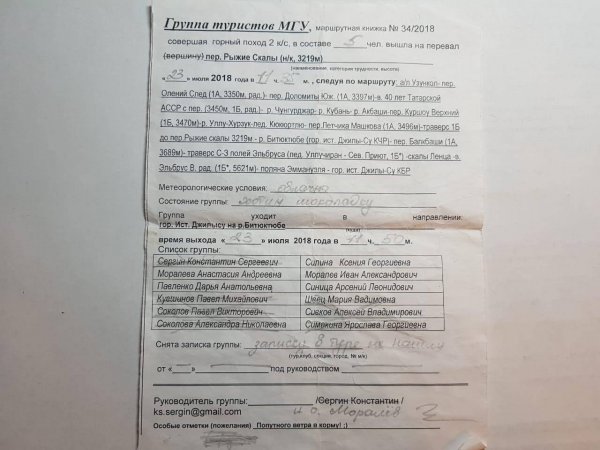 Группа туристов МГУ, маршрутная книжка № 34/2018
совершая горный поход 2 к/с, в составе 5 чел. вышла на перевал
(вершину) пер. Рыжие Скалы (н/к, 3219м)
(наименование, категория трудности, высота)
« 23 » июля 2018 года в 11 ч. 35 м., следуя по маршруту: а/л Узункол- пер.
Олений След (1А, 3350м, рад.)- пер. Доломиты Юж. (1А, 3397м)-в. 40 лет Татарской
АССР с пер. (3450м, 1Б, рад.)- р. Чунгурджар- р. Кубань- р. Акбаши-пер. Куршоу Верхний
(1Б, 3470м)-р. Уллу-Хурзук-лед. Кюкюртлю- пер.Летчика Машкова (1А, 3496м)-траверс 1Б
до пер.Рыжие скалы 3219м - р. Битюктюбе (гор. ист. Джилы-Су КЧР)- пер. Балкбаши (1А,
3689м)- траверс С-З полей Эльбруса (лед. Уллучиран - Сев. Приют, 1Б*) -скалы Ленца -в.
Эльбрус В. рад. (1Б*, 5621м)- поляна Эммануэля - гор. ист. Джилы-Су КБР
Метеорологические условия: облачно
Состояние группы: хотим шоколадку
Группа уходит в направлении:
гор. Ист. Джилысу на р.Битюктюбе
время выхода « 23 » июля 2018 года в 11 ч. 50 м.
Список группы:
Сергин Константин Сергеевич Силина Ксения Георгиевна
Моралева Анастасия Андреевна Моралев Иван Александрович
Павленко Дарья Анатольевна Синица Арсений Леонидович
Кувшинов Павел Михайлович Швец Мария Вадимовна
Соколов Павел Викторович Сивков Алексей Владимирович
Соколова Александра Николаевна Симукина Ярослава Георгиевна
Снята записка группы: записки в туре не нашли
(тур.клуб, секция, город, № м/к)
от « » под руководством
Руководитель группы: /Сергин Константин /
ks.sergin@gmail.com и о. Моралёв
Особые отметки (пожелания) Попутного ветра в корму! ;)